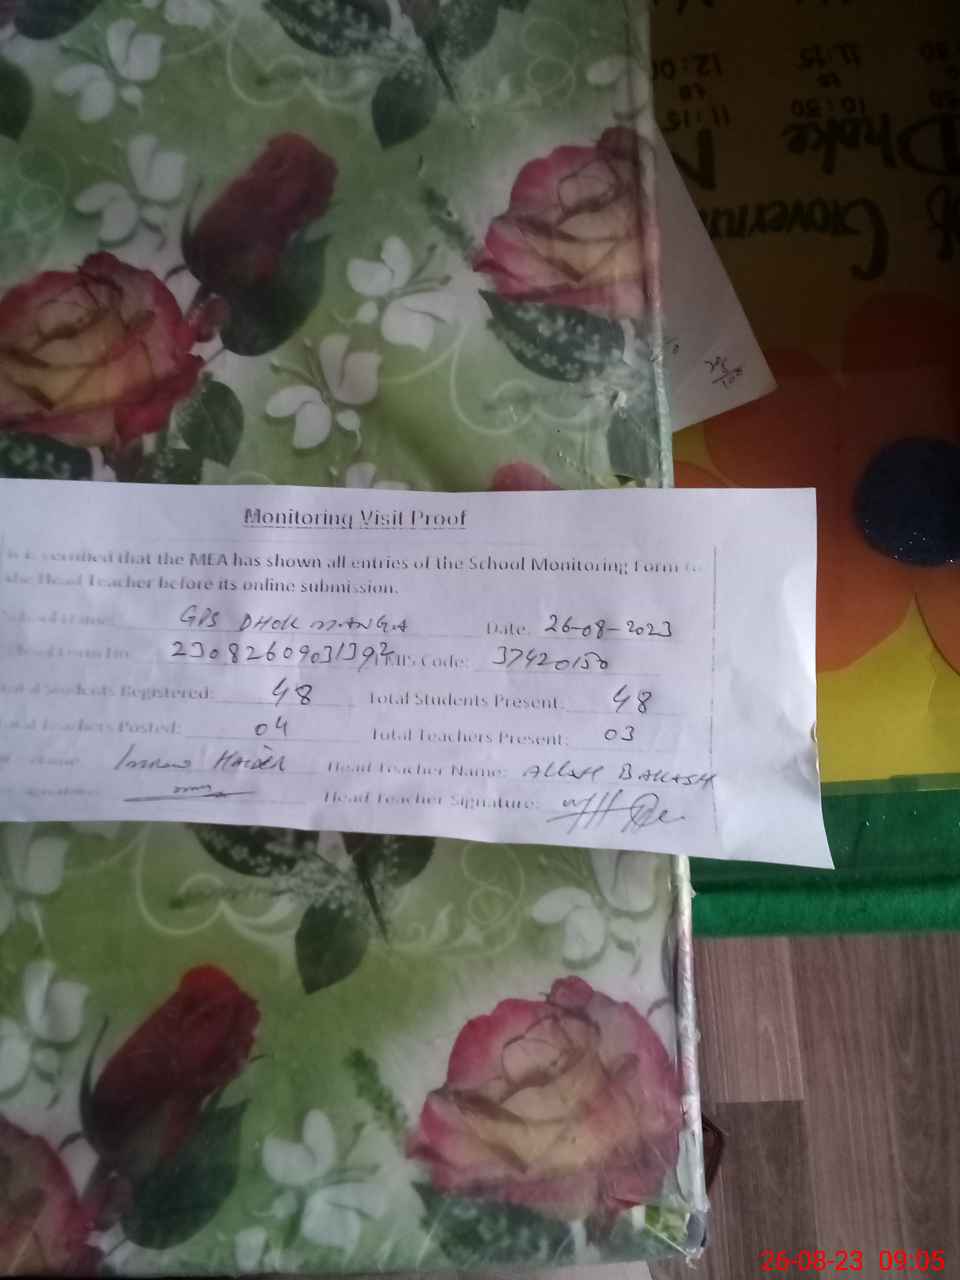 Monitoring Visit Proof
is verified that the MEA has shown all entries of the School Monitoring Form to
the Head Teacher before its online submission.
GPS DHOK MANGA Date: 26-08-2023
23082609031392 EMIS Code: 37420150
Total Students Registered: 48 Total Students Present: 48
Total Teachers Posted: 04 Total Teachers Present: 03
Name: Haider Head Teacher Name: Allah Bakhsh
Head Teacher Signature:
Governm
Dhoke
10:30 11:15
to to
11:15 12:00
26-08-23 09:05